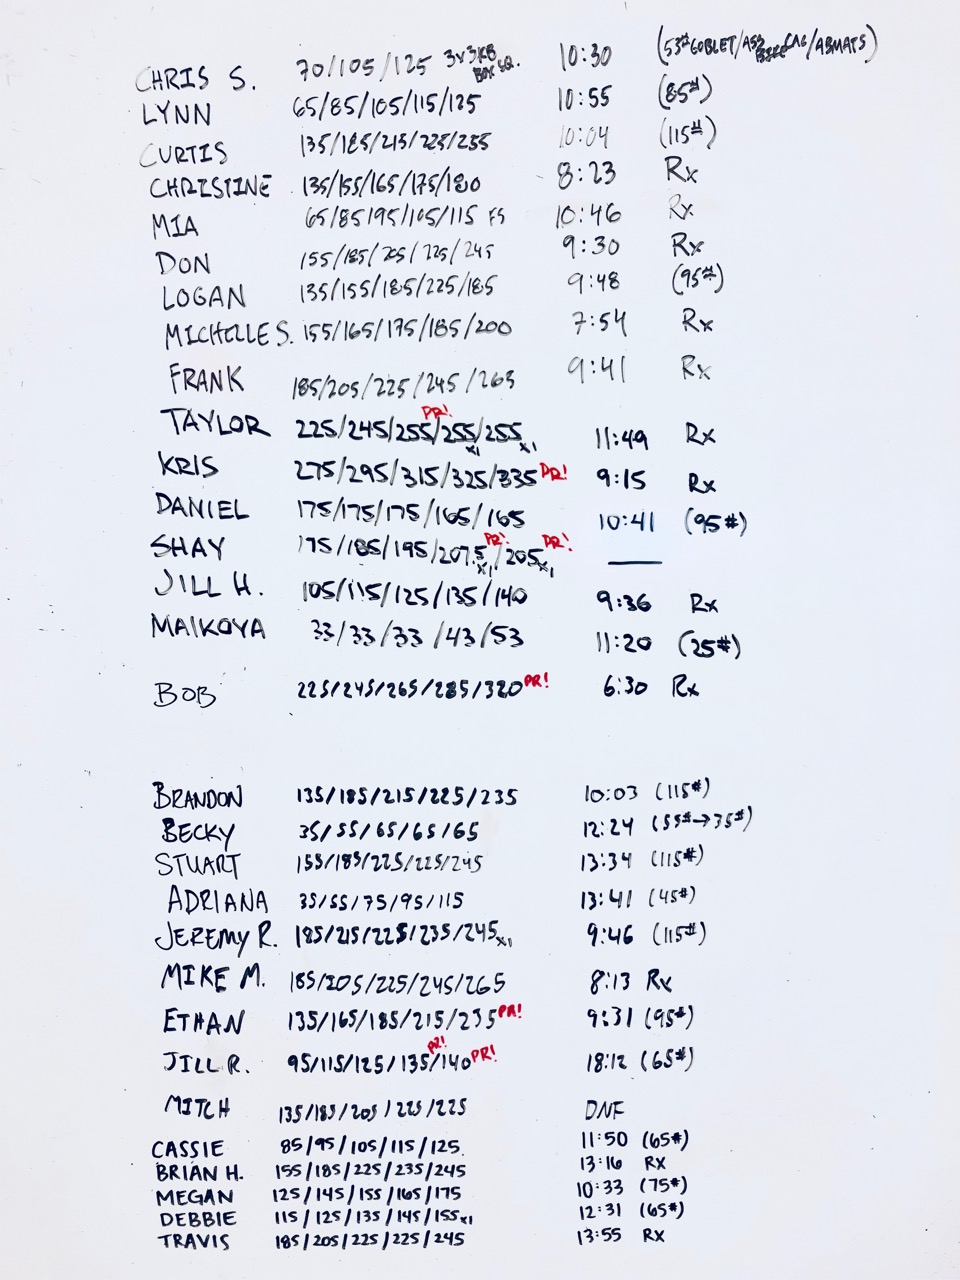 CHRIS S. 70/105/125 3x3 KB BOX SQ. 10:30 (53# GOBLET/ASS BIKE CAG/ABMATS)
LYNN 65/85/105/115/125 10:55 (85#)
CURTIS 135/185/215/225/255 10:04 (115#)
CHRISTINE 135/155/165/175/180 8:23 Rx
MIA 65/85/95/105/115 FS 10:46 Rx
DON 155/185/205/225/245 9:30 Rx
LOGAN 135/155/185/225/185 9:48 (95#)
MICHELLE S. 155/165/175/185/200 7:54 Rx
FRANK 185/205/225/245/265 9:41 Rx
TAYLOR 225/245/255 PR!/255 x1/255 x1 11:49 Rx
KRIS 275/295/315/325/335 PR! 9:15 Rx
DANIEL 175/175/175/165/165 10:41 (95#)
SHAY 175/185/195/207.5 x1 PR!/205 x1 PR! —
JILL H. 105/115/125/135/140 9:36 Rx
MAIKOYA 33/33/33/43/53 11:20 (25#)
BOB 225/245/265/285/320 PR! 6:30 Rx
BRANDON 135/185/215/225/235 10:03 (115#)
BECKY 35/55/65/65/65 12:24 (55#→35#)
STUART 155/185/225/225/245 13:34 (115#)
ADRIANA 35/55/75/95/115 13:41 (45#)
JEREMY R. 185/215/225/235/245 x1 9:46 (115#)
MIKE M. 185/205/225/245/265 8:13 Rx
ETHAN 135/165/185/215/235 PR! 9:31 (95#)
JILL R. 95/115/125/135 PR!/140 PR! 18:12 (65#)
MITCH 135/185/205/225/225 DNF
CASSIE 85/95/105/115/125 11:50 (65#)
BRIAN H. 155/185/225/235/245 13:16 RX
MEGAN 125/145/155/165/175 10:33 (75#)
DEBBIE 115/125/135/145/155 x1 12:31 (65#)
TRAVIS 185/205/225/225/245 13:55 RX